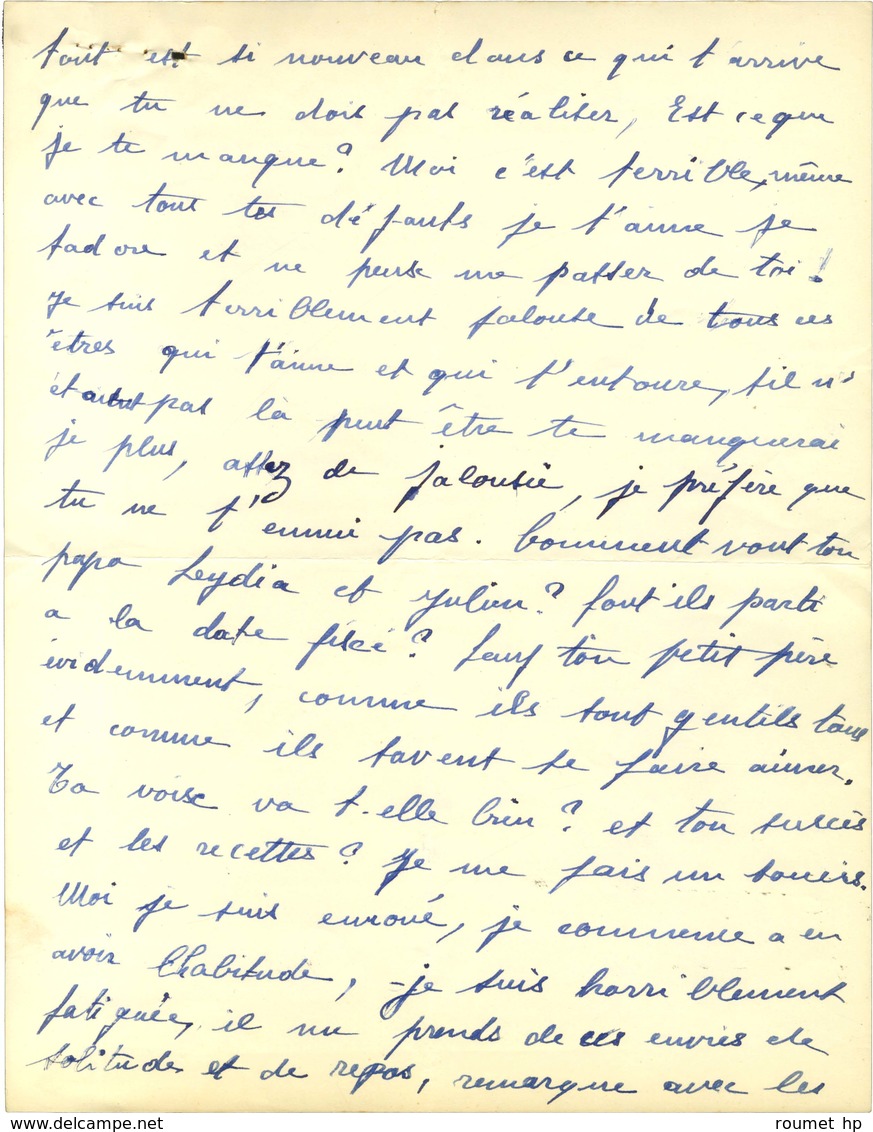 tout est si nouveau dans ce qui t'arrive
que tu ne dois pas réaliser, Est ce que
je te manque? Moi c'est terrible, même
avec tout tes défauts je t'aime je
t'adore et ne peux me passer de toi!
Je suis terriblement jalouse de tous ces
êtres qui t'aime et qui t'entoure, s'il n'
étaient pas là peut être te manquerai
je plus, assez de jalousie, je préfère que
tu ne t'ennui pas. Comment vont ton
papa Leydia et Julien? sont ils parti
a la date fixé? Sauf ton petit père
évidemment, comme ils sont gentils tous
et comme ils savent se faire aimer.
Ta voix va t-elle bien? et ton succès
et les recettes? Je me fais un soucis.
Moi je suis enroué, je commence a en
avoir l'habitude, - je suis horriblement
fatiguée, il me prends de ces envies de
solitude et de repos, remarque avec les
roumet hp